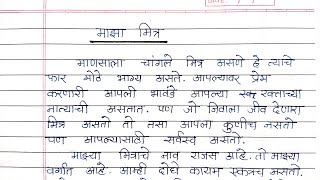 माझा मित्र
माणसाला चांगले मित्र असणे हे त्याचे
फार मोठे भाग्य असते. आपल्यावर प्रेम
करणारी आपली भावंडे आपल्या रक्ताच्या
नात्याची असतात. पण जो जिवाला जीव देणारा
मित्र असतो तो तसा आपला कुणीच नसतो
पण आपल्यासाठी सर्वस्व असतो.
माझ्या मित्राचे नाव राजस आहे. तो माझ्या
वर्गात आहे. आम्ही दोघे कायम एकत्रच असतो.